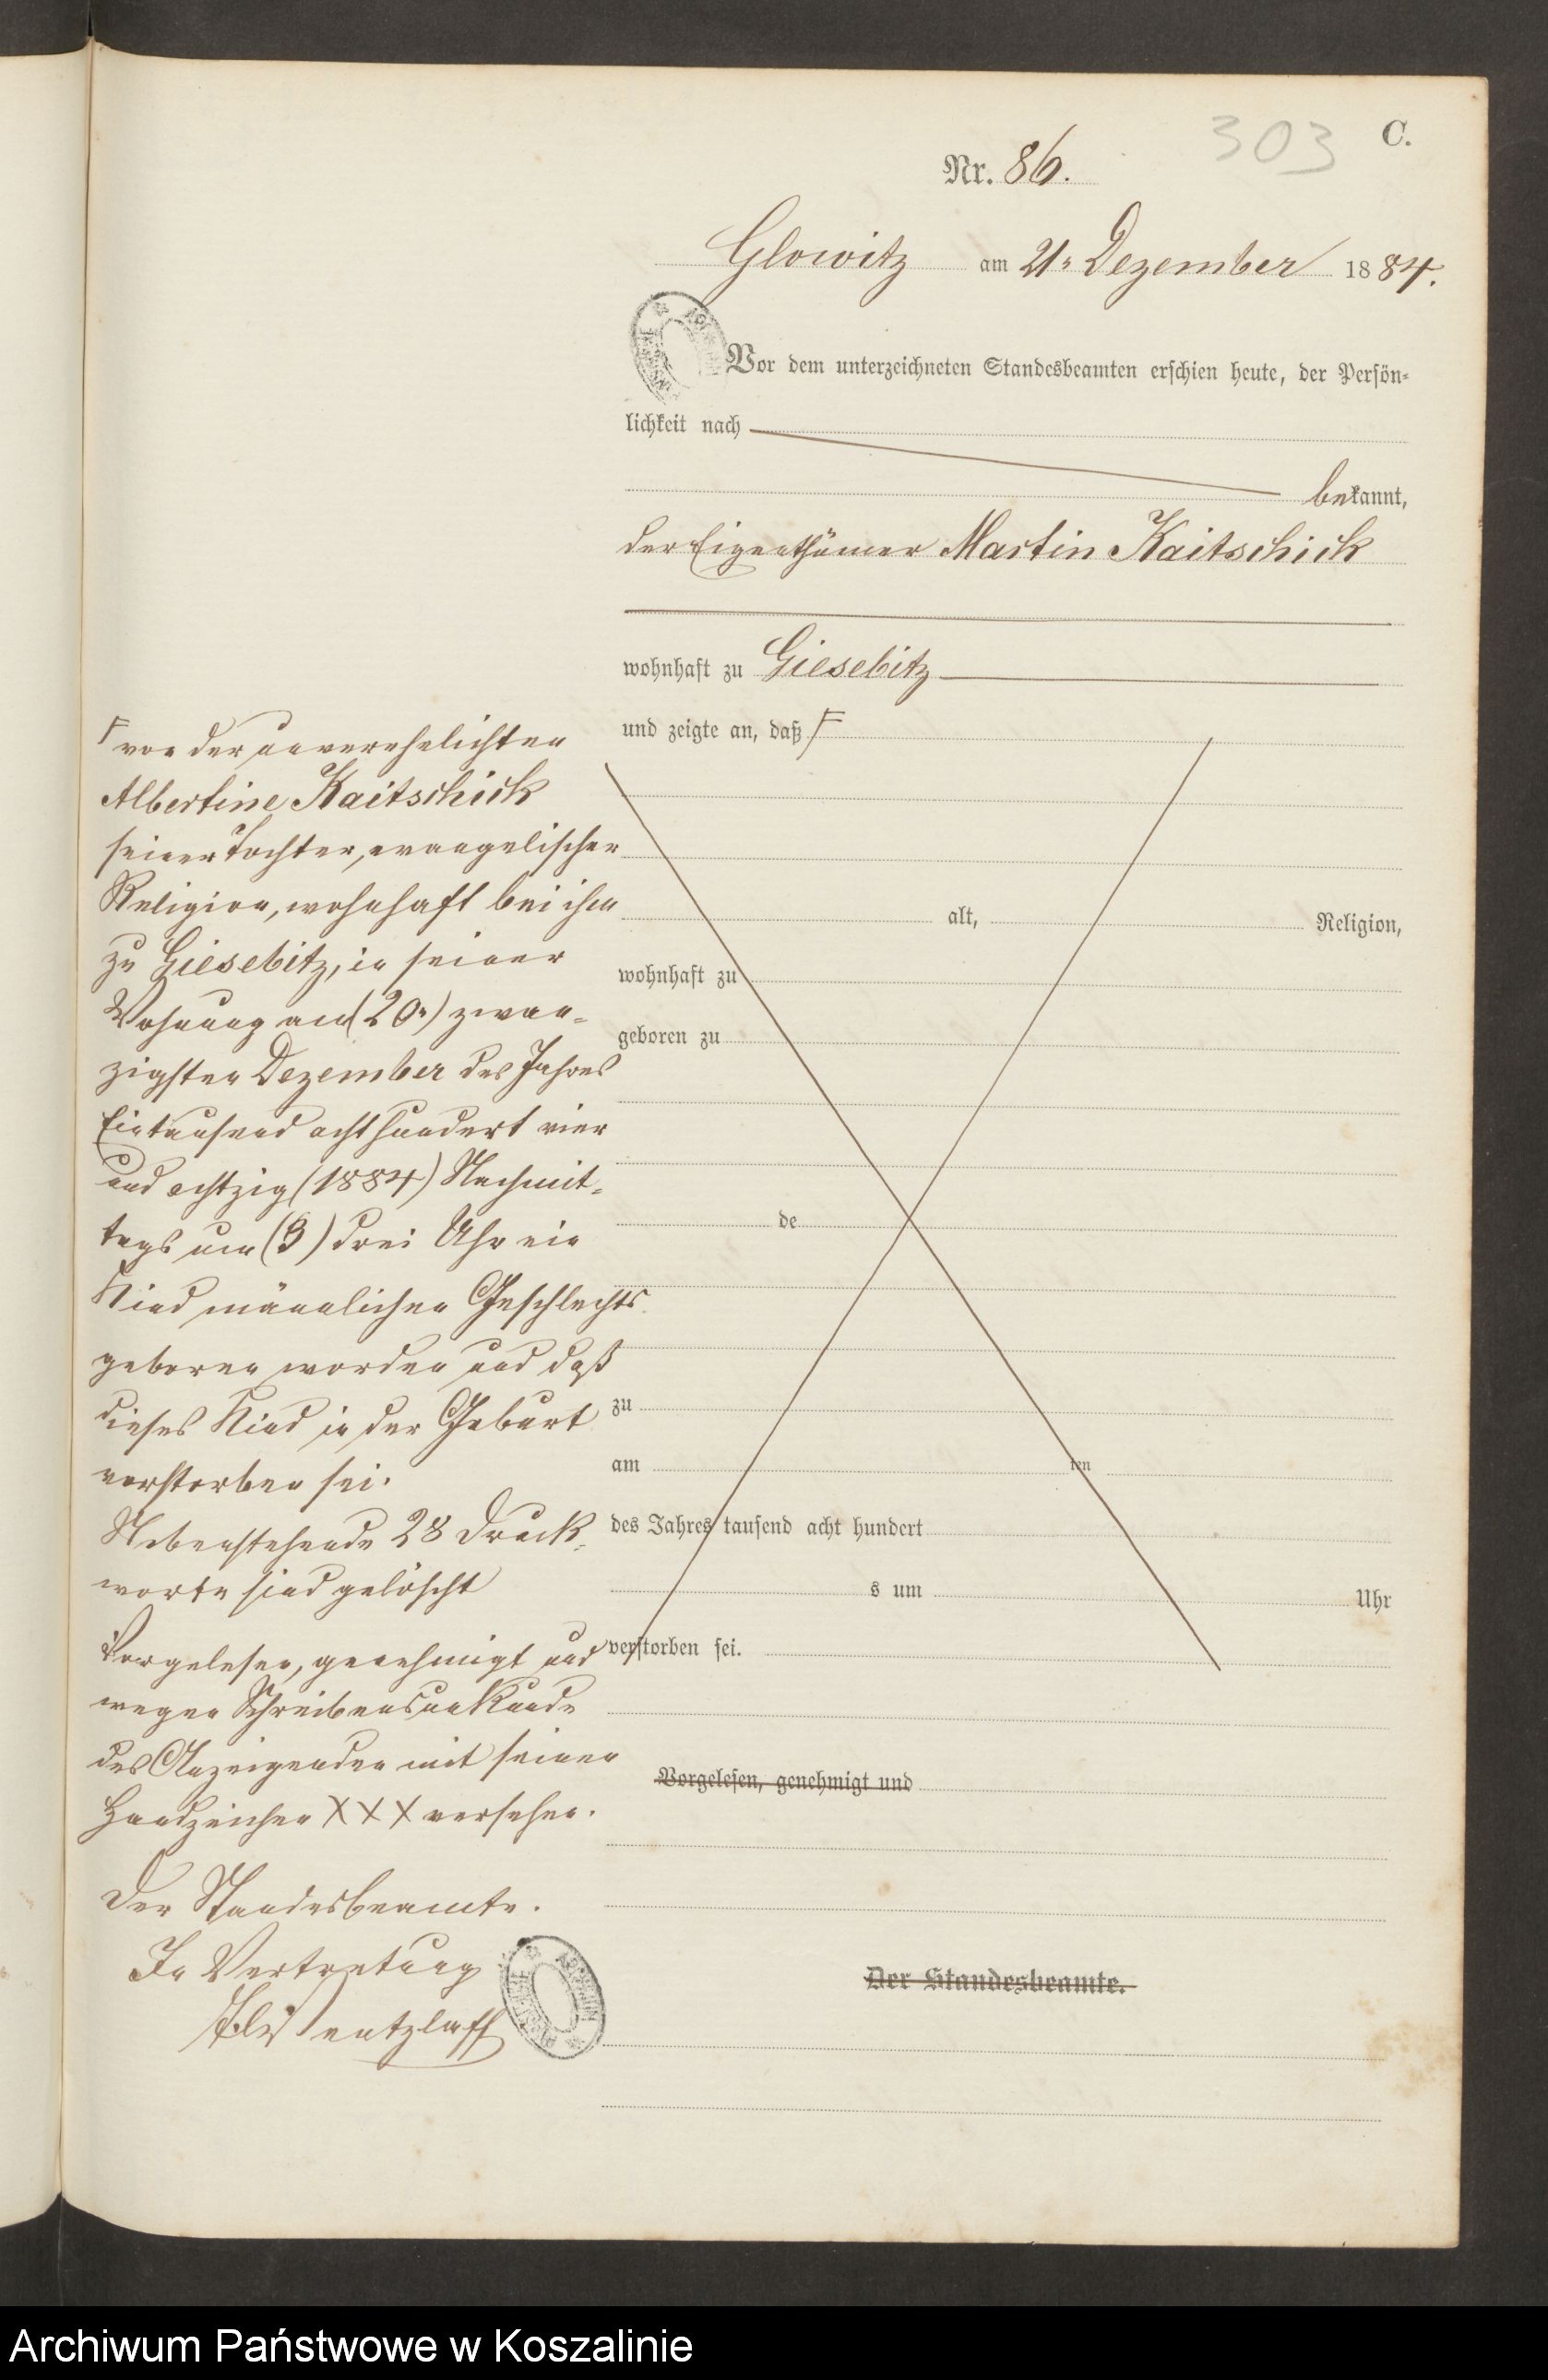 303
C.
Nr. 86.
Glowitz am 21n Dezember 1884.
Vor dem unterzeichneten Standesbeamten erschien heute, der Persön-
lichkeit nach
bekannt,
der Eigenthümer Martin Kaitschick
wohnhaft zu Giesebitz
und zeigte an, daß F
F von der unverehelichten
Albertine Kaitschick
seiner Tochter, evangelischer
Religion, wohnhaft bei ihm
zu Giesebitz, in seiner
Wohnung am (20n) zwan-
zigsten Dezember des Jahres
Eintausend achthundert vier
und achtzig (1884) Nachmit-
tags um (3) drei Uhr ein
Kind männlichen Geschlechts
geboren worden und daß
dieses Kind in der Geburt
verstorben sei.
Nebenstehende 28 Druck-
worte sind gelöscht
Vorgelesen, genehmigt und
wegen Schreibensunkunde
des Anzeigenden mit seinen
Handzeichen XXX versehen.
Der Standesbeamte.
In Vertretung
alt, Religion,
wohnhaft zu
geboren zu
de
zu
am ten
des Jahres tausend acht hundert
s um Uhr
verstorben sei.
Vorgelesen, genehmigt und
Der Standesbeamte.
Archiwum Państwowe w Koszalinie